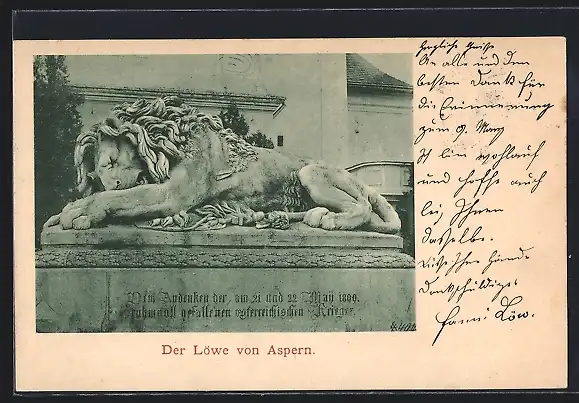 Herzliche Grüße
An alle und den
besten Dank für
die Erinnerung
zum 9. May
Ich bin wohlauf
und hoffe auch
bei Ihnen
dasselbe.
dankschuldiger
Löw.
Dem Andenken der, am 21 und 22 May 1809.
ruhmvoll gefallenen österreichischen Krieger.
Der Löwe von Aspern.